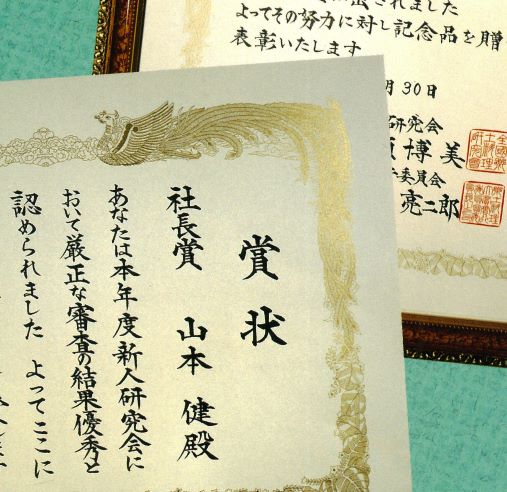 賞状
社長賞 山本 健殿
あなたは本年度新人研究会に
おいて厳正な審査の結果優秀と
認められました よってここに
されました
よってその努力に対し記念品を贈
表彰いたします
月30日
研究会
博美
委員会
亮二郎